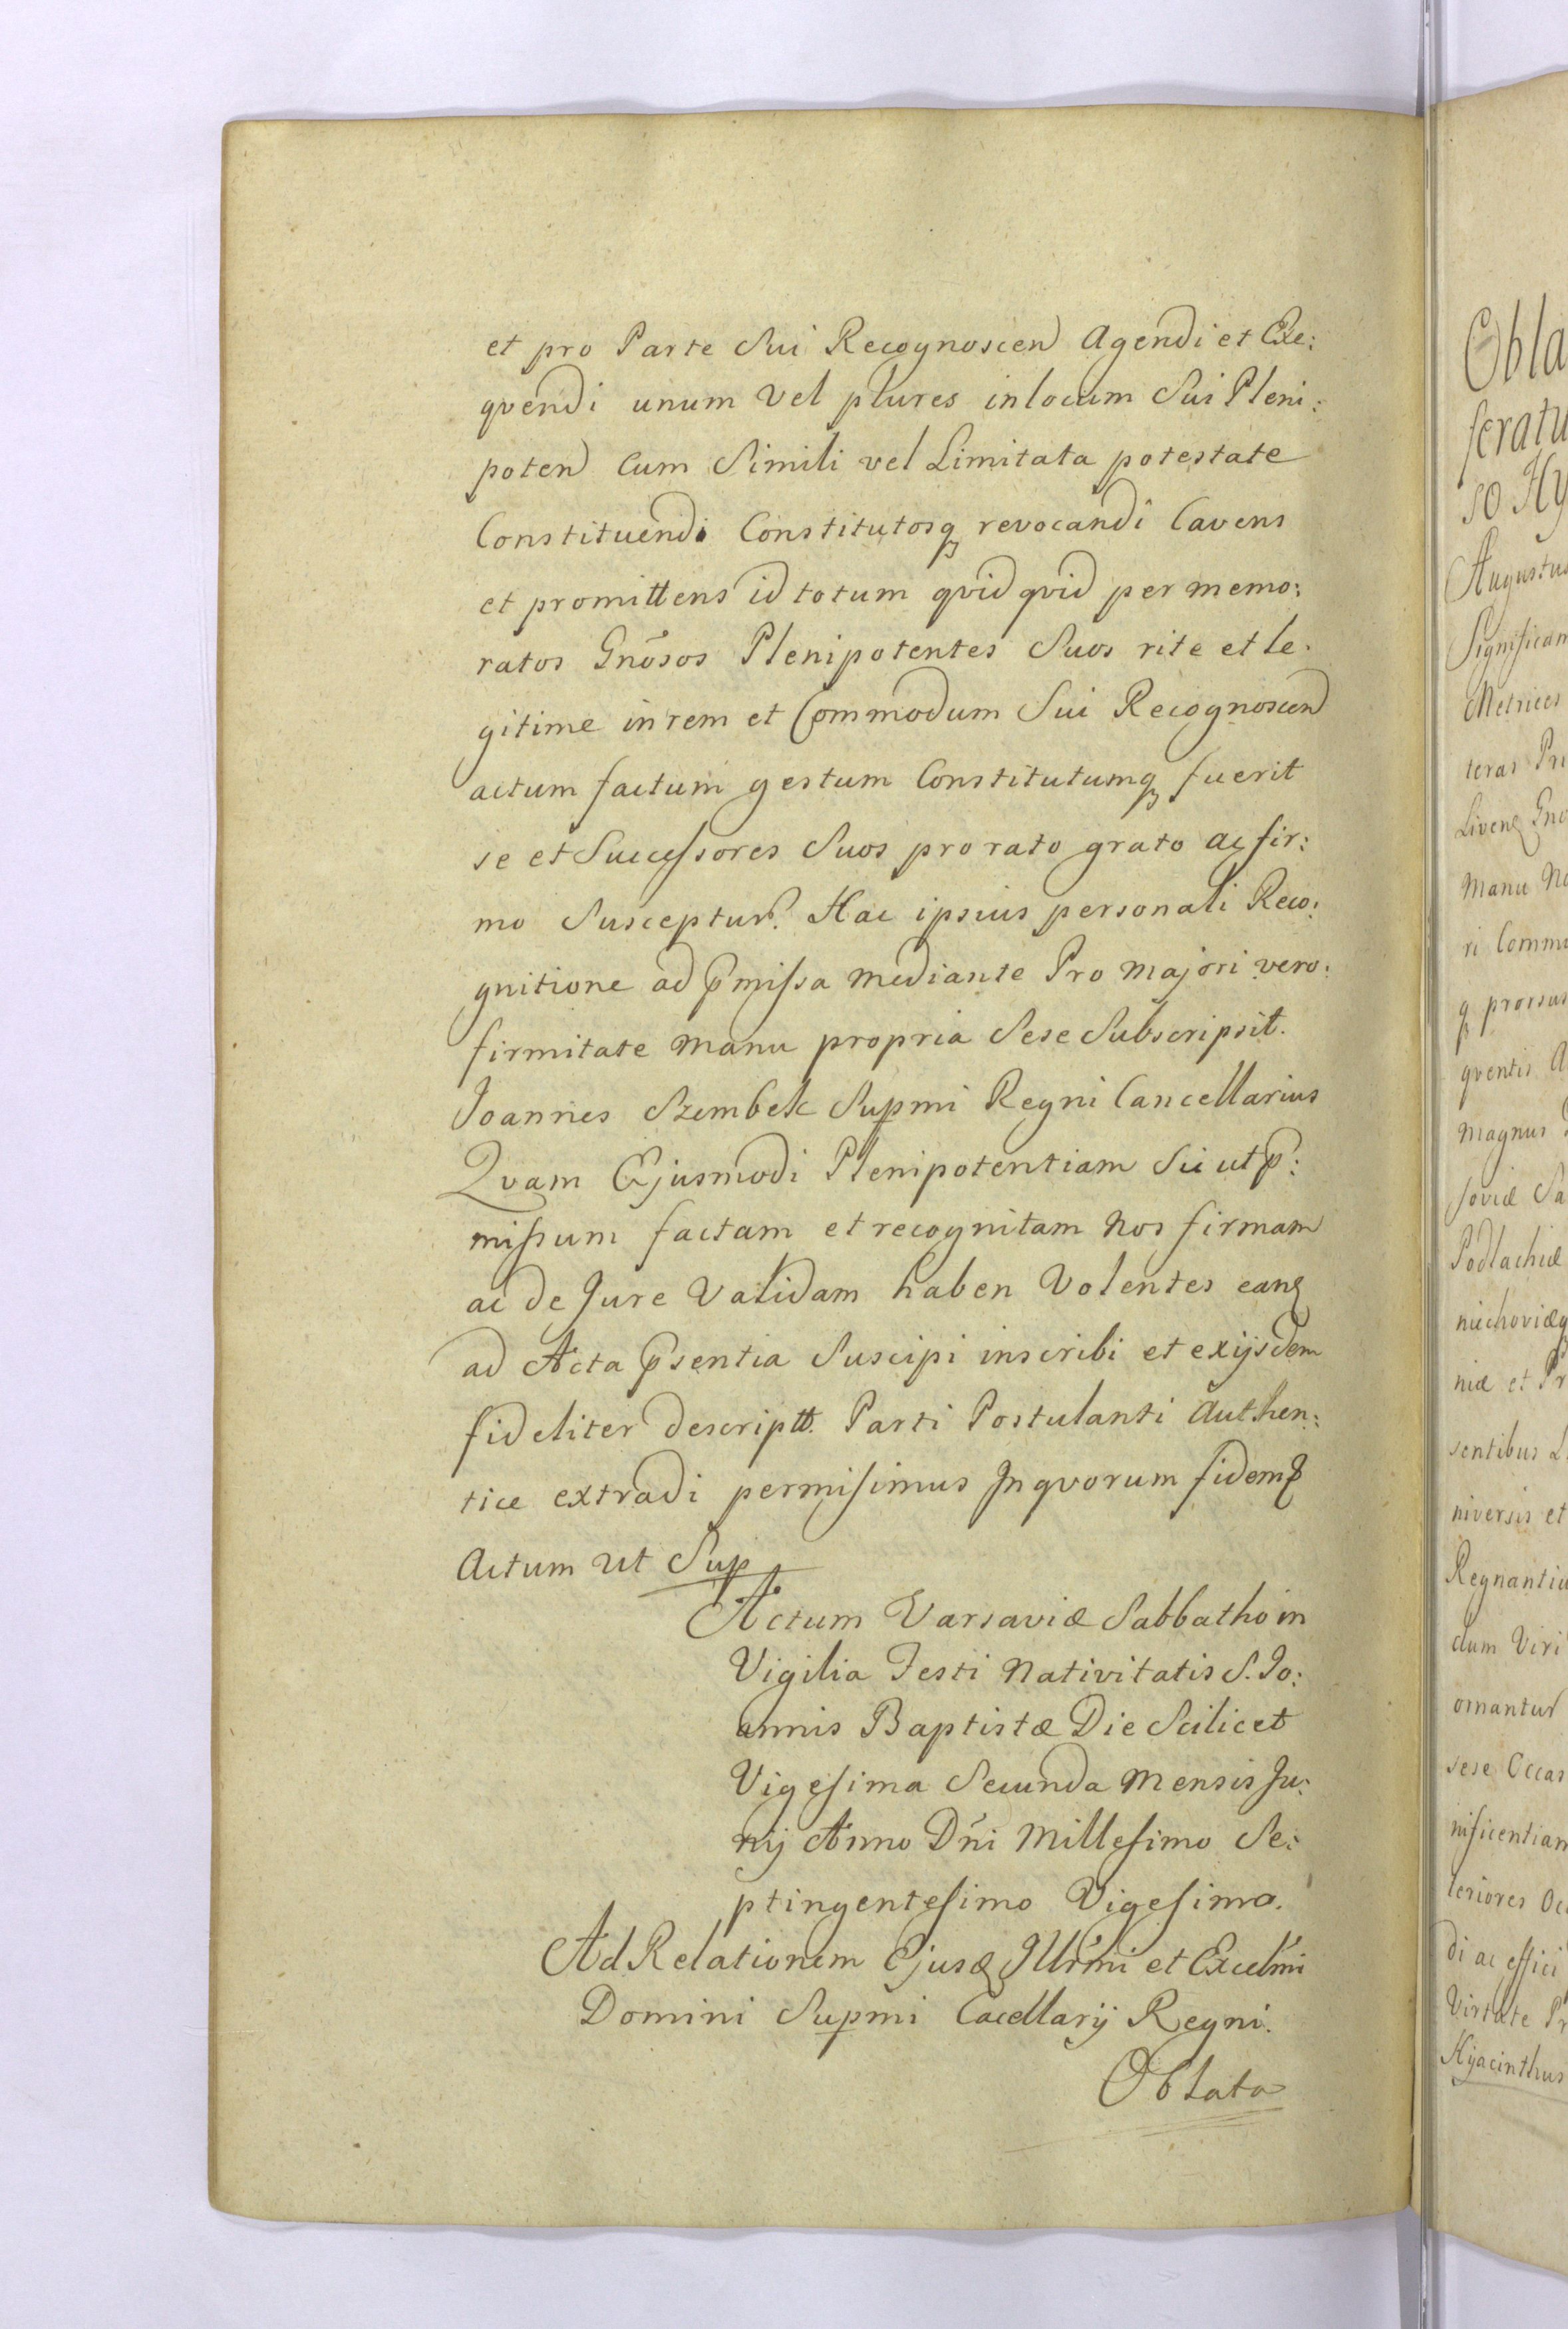 et pro Parte Sui Recognoscen Agendi et Exe:
qvendi unum vel plures in locum Sui Pleni:
poten cum Simili vel Limitata potestate
Constituendi Constitutosq revocandi Cavens
et promittens id totum qvid qvid per memo:
ratos Gnōsos Plenipotentes Suos rite et le.
gitime in rem et Commodum Sui Recognoscen
actum factum gestum Constitutumq fuerit
se et Successores Suos pro rato grato ac fir:
mo Susceptur. Hac ipsius personali Reco:
gnitione ad pmissa mediante Pro majori vero:
firmitate manu propria Sese Subscripsit.
Joannes Szembek Supmi Regni Cancellarius
Qvam Ejusmodi Plenipotentiam Sic ut p:
missum factam et recognitam Nos firmam
ac de Jure Validam haben Volentes eanq
ad Acta psentia Suscipi inscribi et exijsdem
fideliter descriptt. Parti Postulanti Authen:
tice extradi permisimus In qvorum fidem
Actum ut Sup
Actum Varsaviæ Sabbatho in
Vigilia Festi Nativitatis S. Jo:
annis Baptistæ Die Scilicet
Vigesima Secunda Mensis Ju:
nij Anno Dñi Millesimo Se:
ptingentesimo Vigesimo.
Ad Relationem Ejusd Illrmi et Excelmi
Domini Supmi Cacellarij Regni.
Oblata
Obla
feratu
so Hy
Augustus
Significam
Metrices
teras Pri
Liven Gno
Manu No
ri Commu
q prorsus
qventis A
Magnus
soviæ Sa
Podlachiæ
niechoviæq
niæ et Pr
sentibus L
niversis et
Regnantiu
dum Viri
ornantur
sese Occas
nificentiam
teriores Oc
di ac effici
Virtute Pr
Hyacinthus